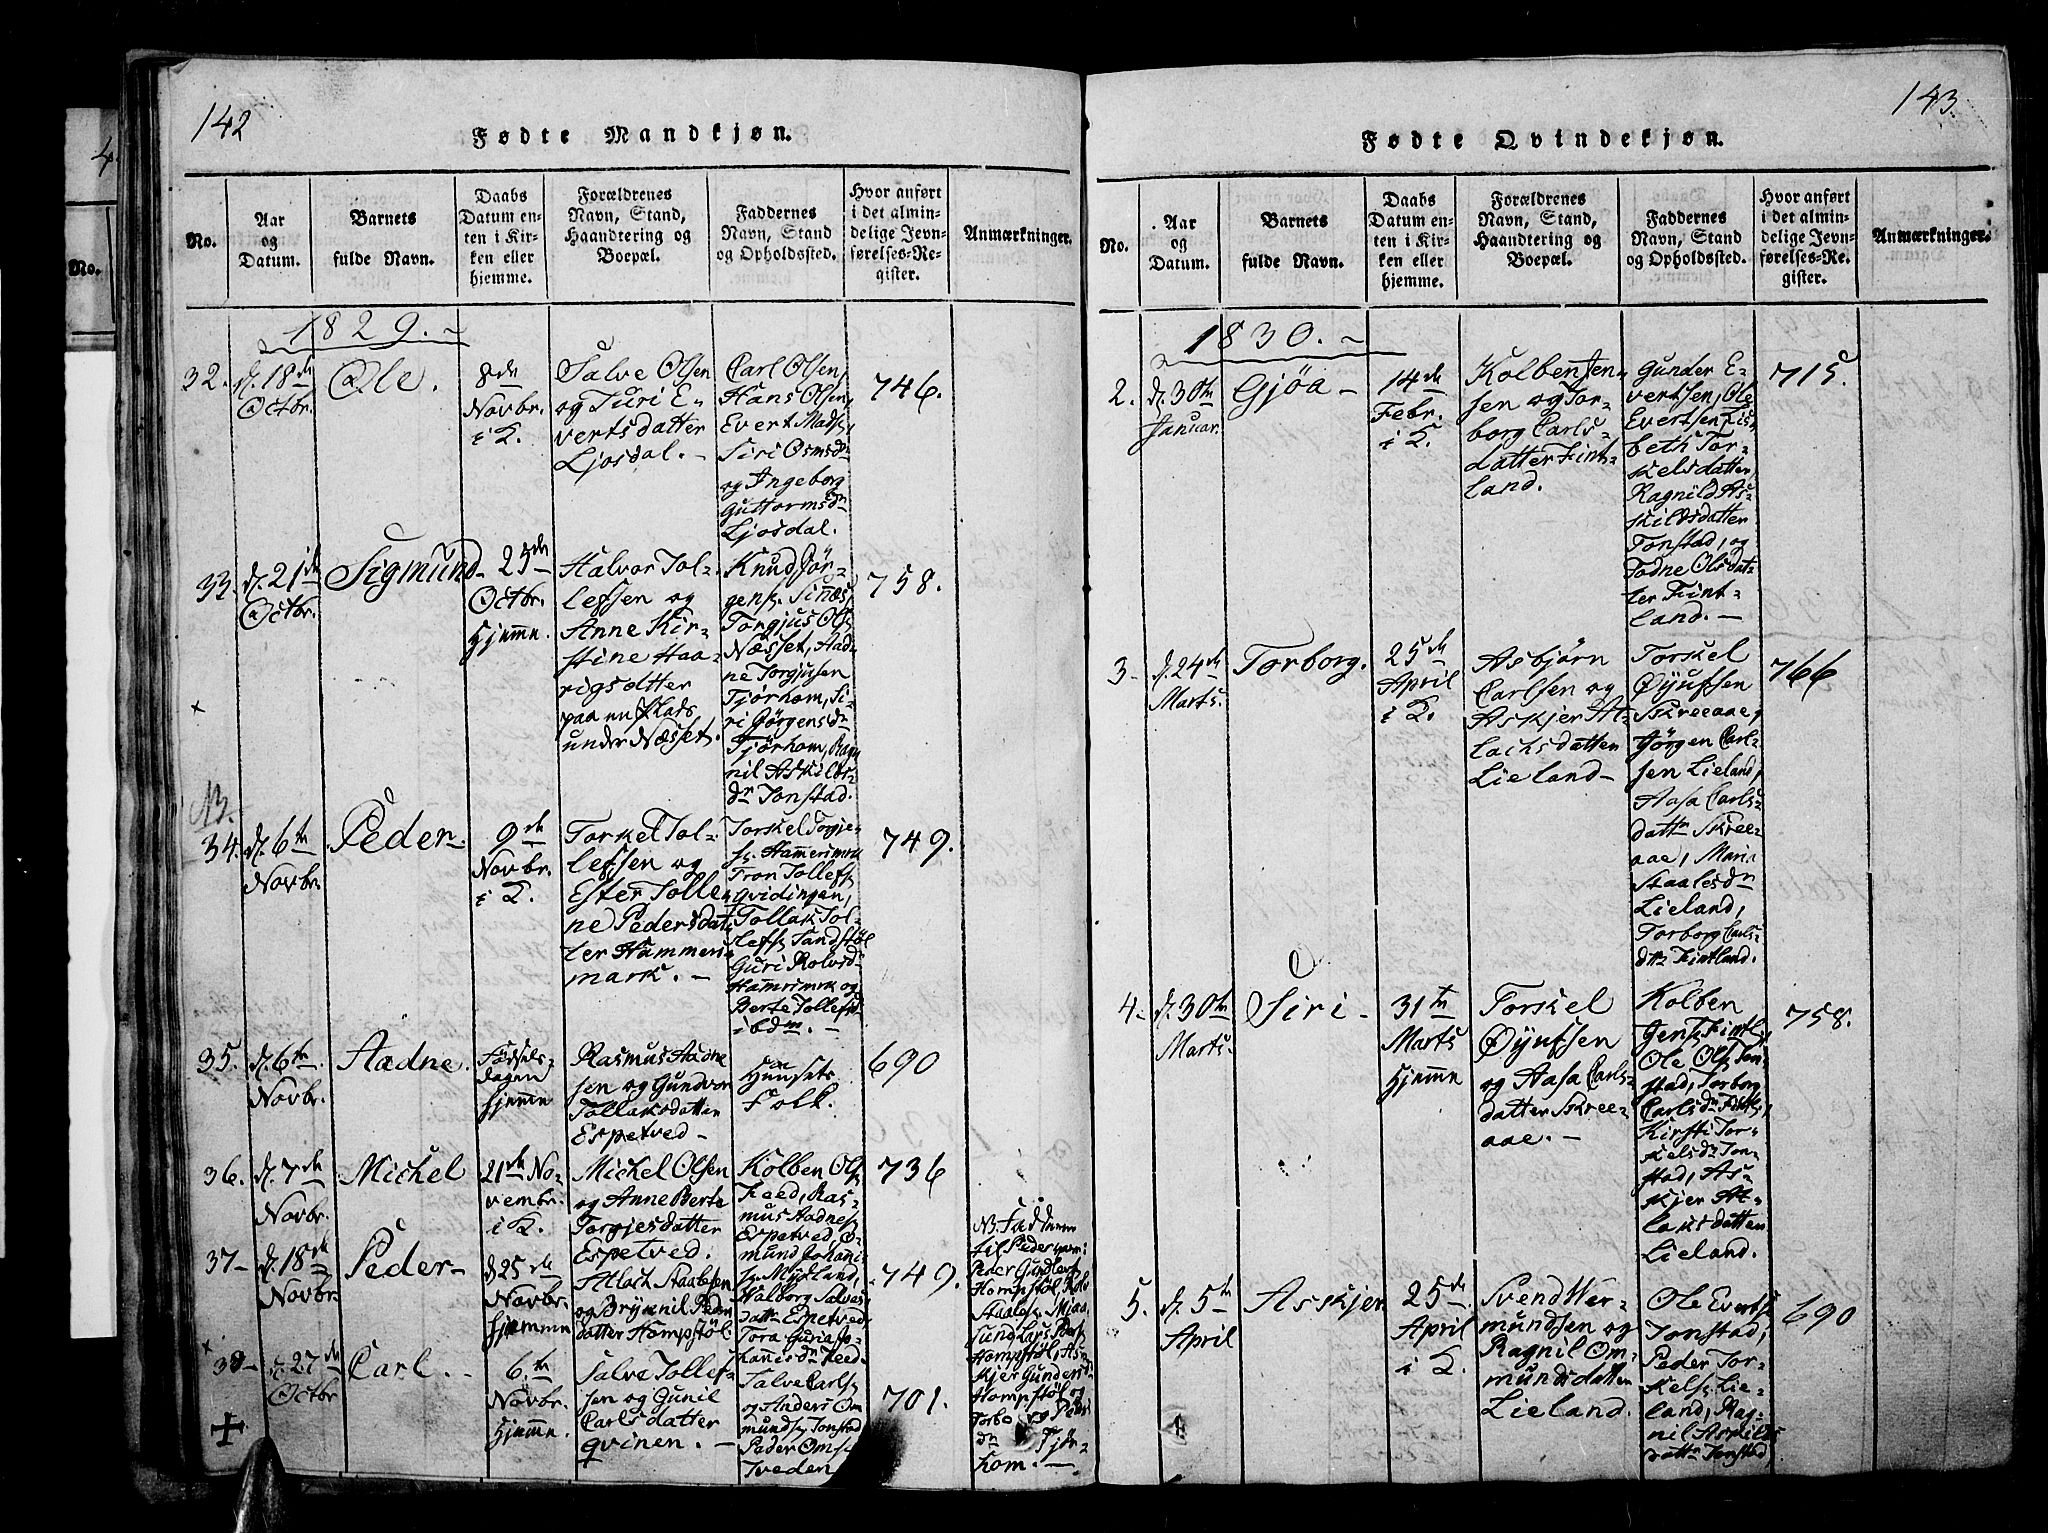 142
Fødte Mandkjøn.
No.
Aar
og
Datum.
Barnets
fulde Navn.
Daabs
Datum en-
ten i Kir-
ken eller
hjemme.
Forældrenes
Navn, Stand,
Haandtering og
Boepæl.
Faddernes
Navn, Stand
og Opholdssted.
Hvor anført
i det almin-
delige Jevn-
førelses-Re-
gister.
Anmærkninger.
1829.
32.
d. 18de
Octbr.
Ole.
8de
Novbr.
i K.
Salve Olsen
og Turi E-
vertsdatter
Ljosdal.
Carl Olsen,
Hans Olsen,
Evert Mads.
Siri Osmsdr
og Ingeborg
Guttormsdr
Ljosdal.
746.
33.
d. 21de
Octbr.
Sigmund
25de
Octbr.
Hjemme.
Halvor Tol-
lefsen og
Anne Kir-
stine Haa-
rigsdatter
paa en Plads
under Næsset.
Knud Jör-
gens. Sinæs,
Torgjus Ols.
Næsset, Aad-
ne Torgjusen
Tjørhom, Si-
ri Görgensdr
Tjørhom, Rag-
nil Askilds-
dr Tonstad.
758.
NB.
34.
d. 6te
Novbr.
Peder
9de
Novbr.
i K.
Torkel Tol-
lefsen og
Ester Tolle-
ne Pedersdat-
ter Hammeri-
mark.
Torkel Torgje-
s. Hammerimrk
Tron Tollefs.
Gvidingen,
Tollak Tol-
lefs. Tandstøl
Guri Rolvsd.
Hamrimrk og
Berte Tollefsd.
ibdm.
749.
35.
d. 6te
Novbr.
Aadne.
Fødsels-
dagen
hjemme
Rasmus Aadne
sen og Gundvor
Tollaksdatter
Espetved
Huusets
Folk.
690
36.
d. 7de
Novbr.
Michel
21de No-
vembr.
i K.
Michel Olsen
og Anne Berte
Torgjesdatter
Espetved.
Kolben Ols.
Feed, Ras-
mus Aadnes.
Espetved, O-
mund Johani-
s. Mydland,
Valborg Salves-
datt. Espetved
Tora Guria Jo-
hannisdr Feed.
736
37
d. 18de
Novbr.
Peder
d 25de
Novbr.
hjemme
Atlach Staalesen
og Brynnil Peder
datter Hompstøl
749.
NB Fadderne
til Peder vare:
Peder Gundlers.
Hompstøl, Rolv
Staales. Mjaa,
Hompstøl, As-
kjer Gundersd.
Hompstøl og
Pedri
dr Tjör-
hom.
38
d. 27de
Octbr
Carl.
6te
Novbr.
Hjemme.
Salve Tollef-
sen og Gunil
Carlsdatter
Qvinen.
Salve Carls.
og Anders Om-
munds. Tonstad
Peder Oms.
Tveden
701.
143.
Fødte Qvindekjøn.
No.
Aar
og
Datum.
Barnets
fulde Navn.
Daabs
Datum en-
ten i Kir-
ken eller
hjemme.
Forældrenes
Navn, Stand,
Haandtering og
Boepæl.
Faddernes
Navn, Stand
og Opholdssted.
Hvor anført
i det almin-
delige Jevn-
førelses-Re-
gister.
Anmærkninger.
1830.
2.
d. 30te
Januar.
Gjøa
14de
Febr.
i K.
Kolben Jen-
sen og Tor-
borg Carls-
datter Fint-
land.
Gunder E-
vertsen, Ole
Evertsen, Lis-
beth Tor-
kelsdatter,
Ragnild As-
kildsdatter
Tonstad, og
Todne Olsdat-
ter Fint-
land.
715.
3
d. 24de
Marts.
Torborg.
25de
April
i K.
Asbjørn
Carlsen og
Askjer At-
lachsdatter
Lieland
Torkel
Øyufsen
Skreeaae,
Görgen Carl-
sen Lieland,
Aasa Carls-
dattr Skree-
aae, Maria
Staalesdr
Lieland,
Torborg Carls-
dtr Fintland.
766
4.
d. 30te
Marts.
Siri
31te
Marts
Hjemme
Torkel
Øyufsen
og Aasa Carls-
datter Skree-
aae.
Kolben
Jens. Fintl,
Ole Ols. Ton-
stad, Torborg
Carlsdr Fintl,
Kirsti Tor-
kelsdr Ton-
stad, As-
kjer At-
laksdatter
Lieland.
758.
5.
d. 5te
April
Askjer
25de
April
i K.
Svend Ver-
mundsen og
Ragnil Om-
mundsdatter
Lieland.
Ole Everts.
Tonstad,
Peder Tor-
kels. Lie-
land, Rag-
nil Askilds
dattr Tonstad,
690